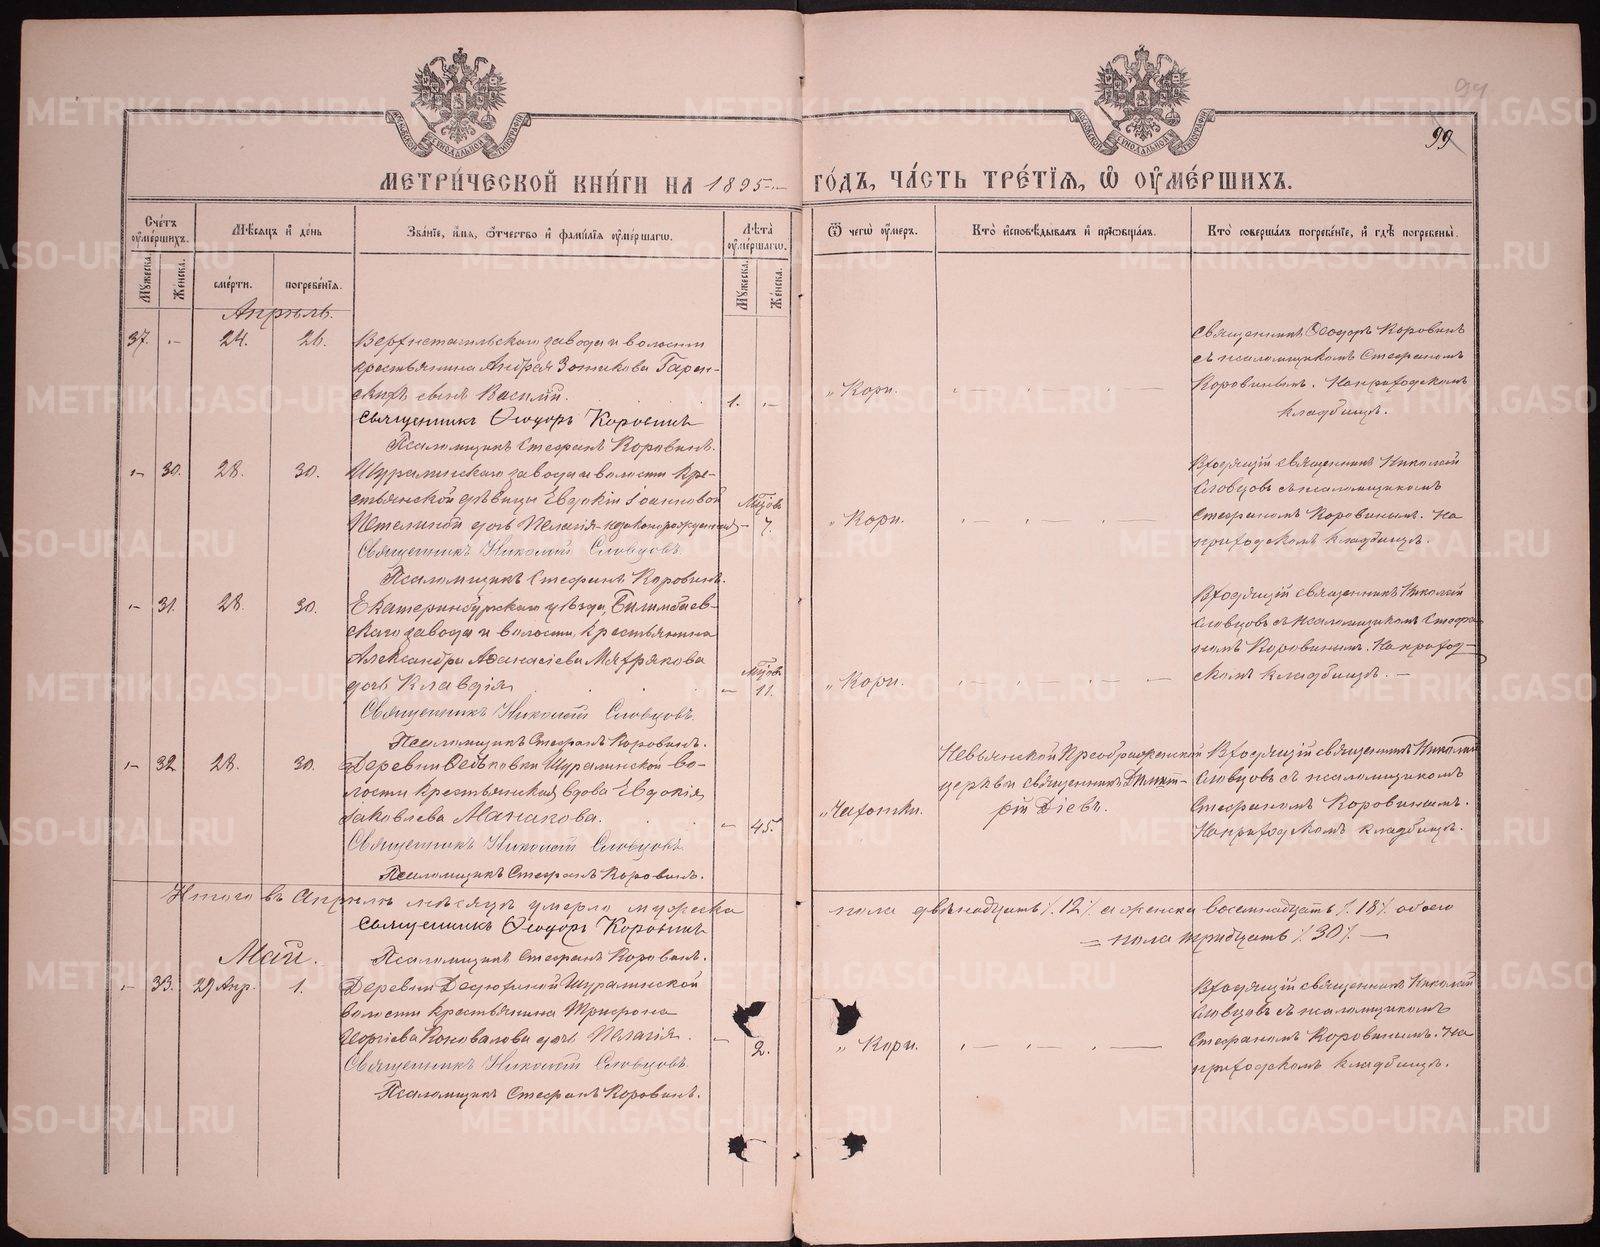 99
МЕТРИ́ЧЕСКОЙ КНИ́ГИ НА 1895 ГО́ДЪ, ЧА́СТЬ ТРЕ́ТІЯ, Ѡ ОУ҆МЕ́РШИХЪ.
Сче́тъ оу҆ме́ршихъ.
Мꙋ́жеска.
Же́нска.
Мѣ́сяцъ и҆ де́нь
сме́рти.
погребе́нія.
Зва́ніе, и҆́мя, ѻ҆́тчество и҆ фами́лія оу҆ме́ршагѡ.
Лѣ́та оу҆ме́ршагѡ.
Мꙋ́жеска.
Же́нска.
Ѿ чегѡ̀ оу҆́меръ.
Кто̀ и҆сповѣ́дывалъ и҆ прїѡбща́лъ.
Кто̀ соверша́лъ погребе́ніе, и҆ гдѣ̀ погребены̀.
Апрѣль.
37. - 24. 26. Верхнетагильскаго завода и волости
крестьянина Андрея Зотикова Гарен-
скихъ сынъ Василій. 1. -
Священникъ Ѳеодоръ Коровинъ
Псаломщикъ Стефанъ Коровинъ.
„ Кори.
Священникъ Ѳеодоръ Коровинъ
съ псаломщикомъ Стефаномъ
Коровинымъ. На приходскомъ
кладбищѣ.
- 30. 28. 30. Шуралинскаго завода и волости кре-
стьянской дѣвицы Евдокіи Іоанновой
дочь Пелагія - незаконорожденная
7.
Священникъ Николай Словцовъ.
Псаломщикъ Стефанъ Коровинъ.
„ Кори.
Входящій священникъ Николай
Словцовъ съ псаломщикомъ
Стефаномъ Коровинымъ. На
приходскомъ кладбищѣ.
- 31. 28. 30. Екатеринбургскаго уѣзда, Билимбаев-
скаго завода и волости, крестьянина
Александра Аѳанасіева Мягрякова
дочь Клавдія - 11.
Священникъ Николай Словцовъ.
Псаломщикъ Стефанъ Коровинъ.
„ Кори.
Входящій священникъ Николай
Словцовъ съ псаломщикомъ Стефа-
номъ Коровинымъ. На приход-
скомъ кладбищѣ. -
- 32. 28. 30. Деревни Ѳедьковки Шуралинской во-
лости крестьянская вдова Евдокія
Іаковлева Манакова. - 45.
Священникъ Николай Словцовъ.
Псаломщикъ Стефанъ Коровинъ.
„ Чахотки.
Невьянской Преображенской
церкви священникъ Димит-
рій Діевъ.
Входящій священникъ Николай
Словцовъ съ псаломщикомъ
Стефаномъ Коровинымъ.
На приходскомъ кладбищѣ.
Итого въ Апрѣлѣ мѣсяцѣ умерло мужеска пола двѣнадцать /. 12 /. а женска восемнадцать /. 18 /. обоего
= пола тридцать /. 30 /. -
Священникъ Ѳеодоръ Коровинъ
Псаломщикъ Стефанъ Коровинъ.
Май.
- 33. 29 Апр. 1. Деревни Шуралинской
волости крестьянина Трифона
Коновалова дочь Пелагія. - 2.
Священникъ Николай Словцовъ.
Псаломщикъ Стефанъ Коровинъ.
„ Кори.
Входящій священникъ Николай
Словцовъ съ псаломщикомъ
Стефаномъ Коровинымъ. На
приходскомъ кладбищѣ.
METRIKI.GASO-URAL.RU